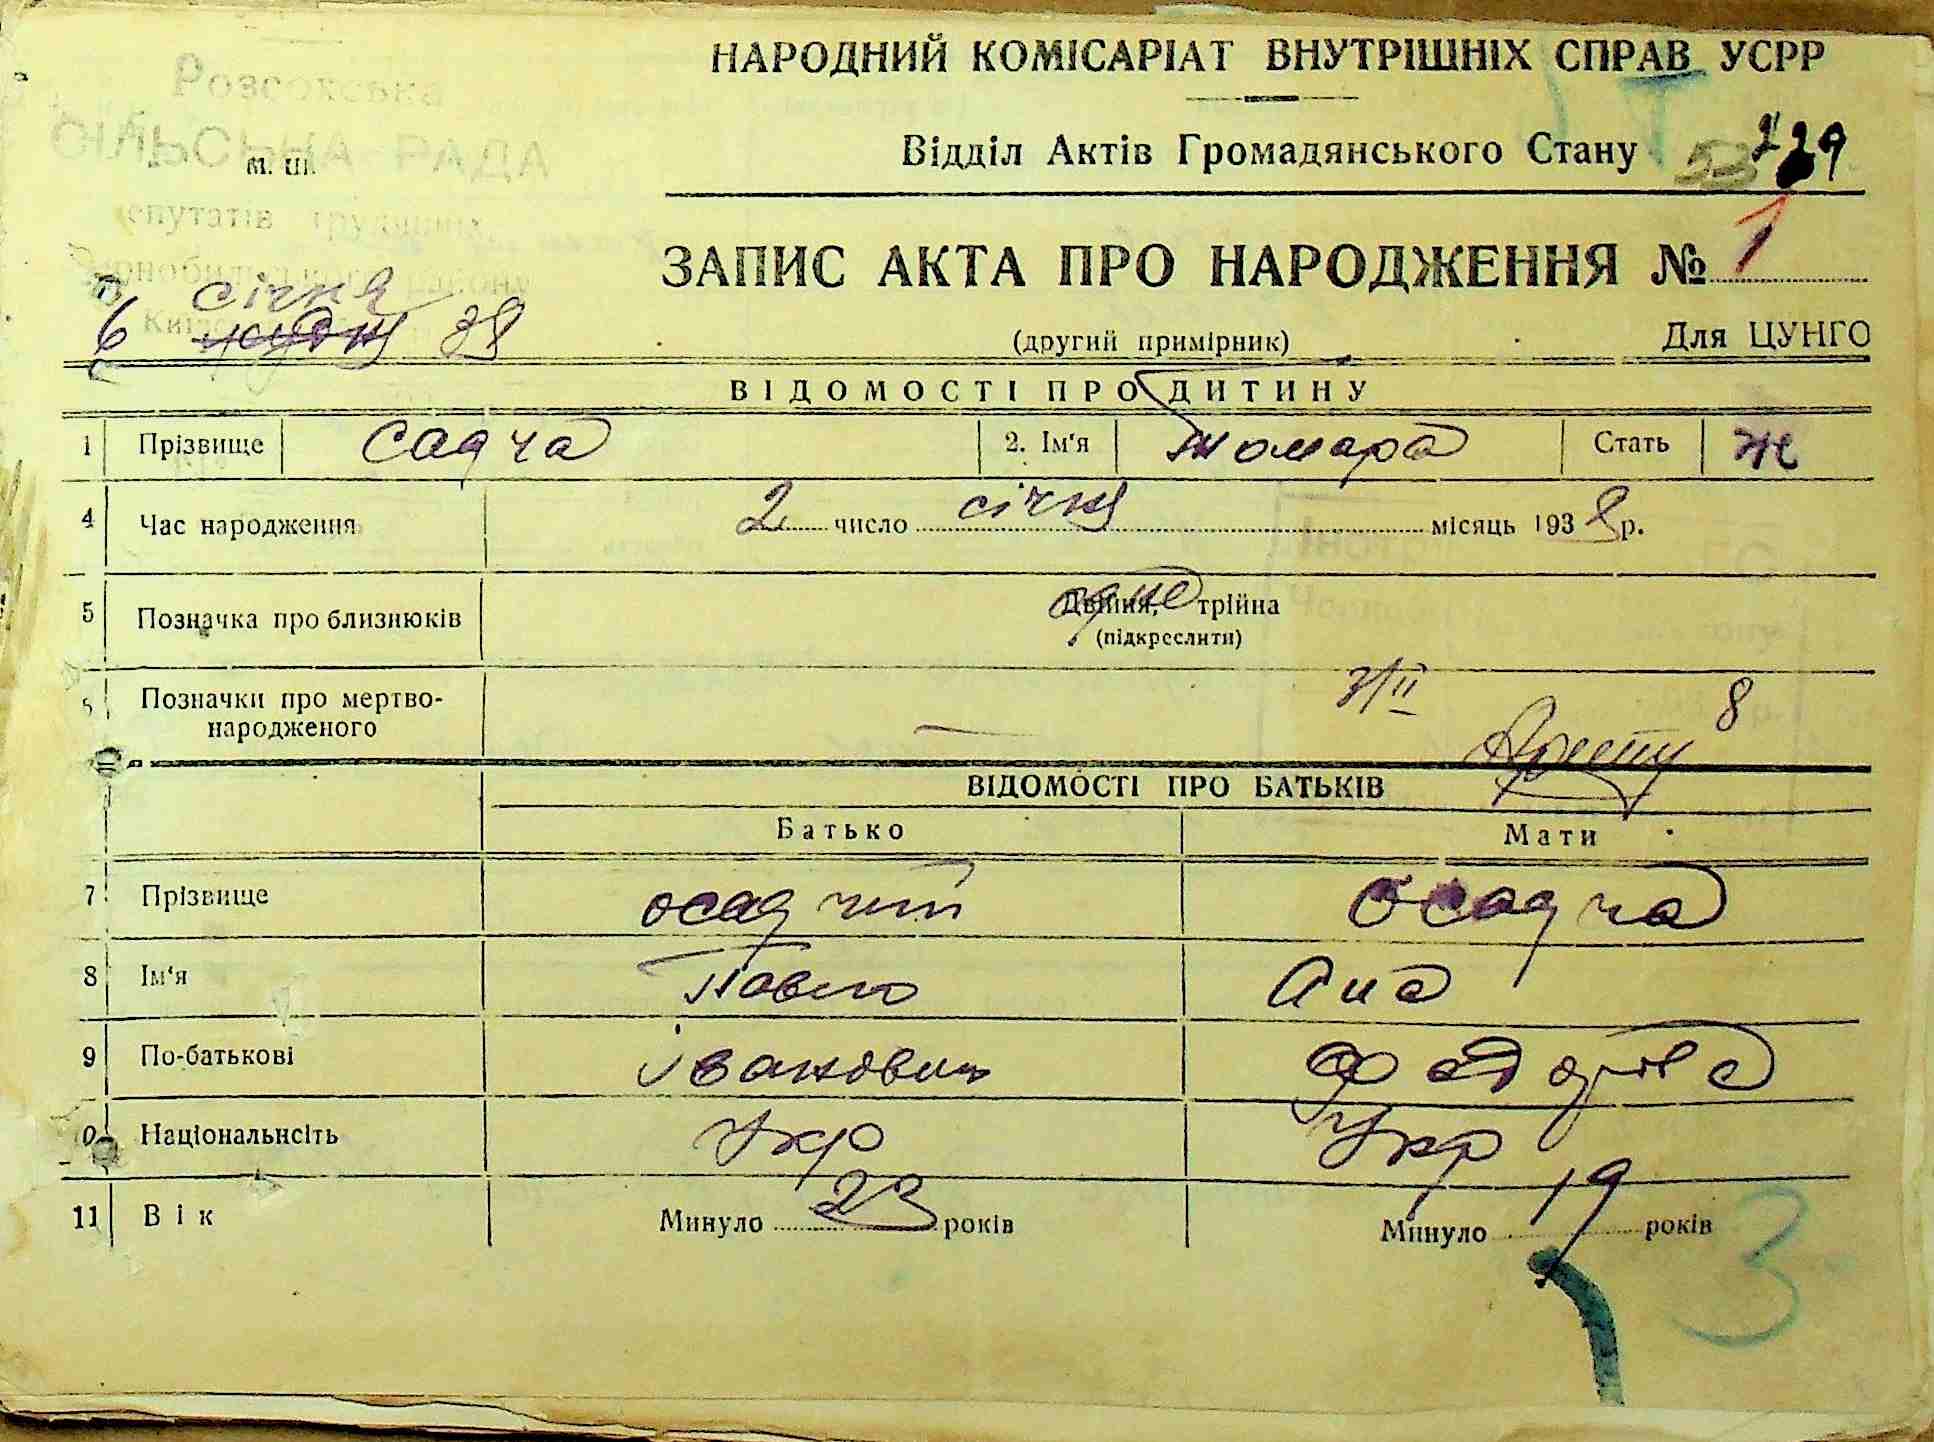 Розсохська
СІЛЬСЬКА РАДА
м. ш.
депутатів трудящих
Чорнобильського району
НАРОДНИЙ КОМІСАРІАТ ВНУТРІШНІХ СПРАВ УСРР
Відділ Актів Громадянського Стану
ЗАПИС АКТА ПРО НАРОДЖЕННЯ № 1
6 січня 38
(другий примірник) Для ЦУНГО
ВІДОМОСТІ ПРО ДИТИНУ
1 Прізвище Садча 2. Ім'я Томара Стать Ж
4 Час народження 2 число січня місяць 1938 р.
5 Позначка про близнюків Двійня, одне трійна
(підкреслити)
Позначки про мертво-
народженого
3/II 8
ВІДОМОСТІ ПРО БАТЬКІВ
Батько Мати
7 Прізвище осадчий осадча
8 Ім'я Павло Ана
9 По-батькові Іванович Федорівна
0 Національнсіть Укр Укр
11 Вік Минуло 23 років Минуло 19 років
3